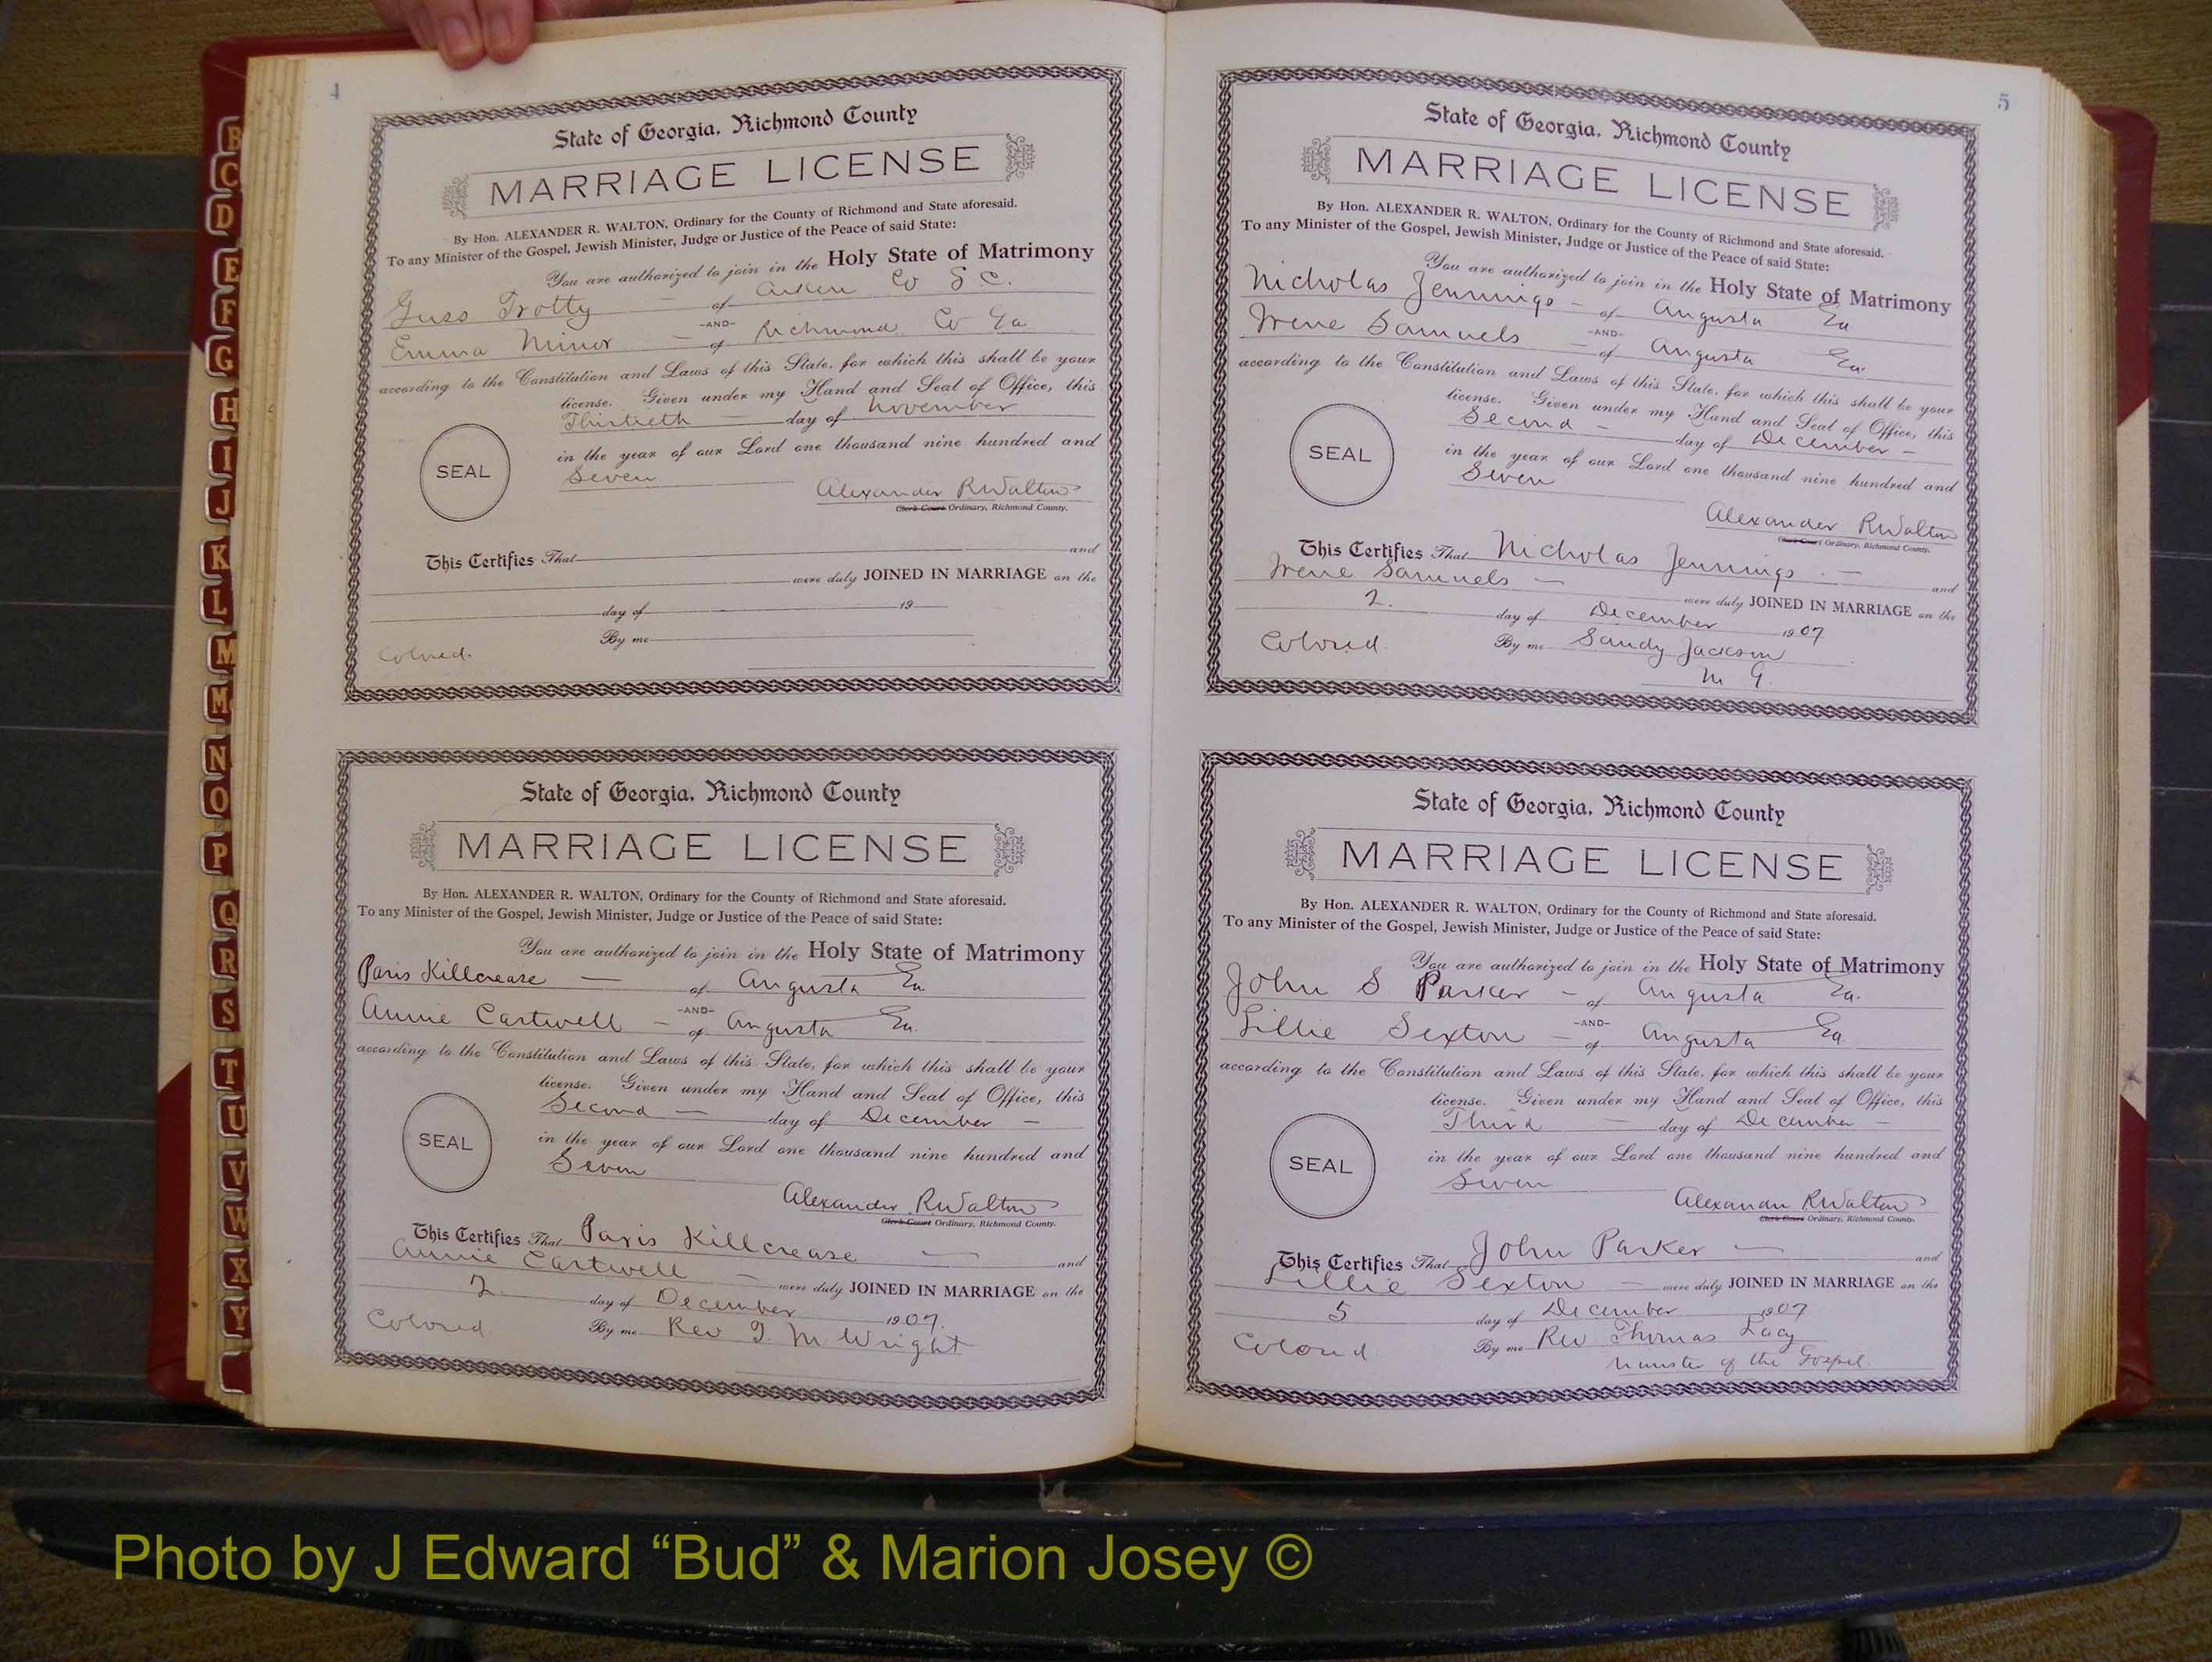 4
State of Georgia, Richmond County
MARRIAGE LICENSE
By Hon. ALEXANDER R. WALTON, Ordinary for the County of Richmond and State aforesaid.
To any Minister of the Gospel, Jewish Minister, Judge or Justice of the Peace of said State:
You are authorized to join in the Holy State of Matrimony
Guss Trotty — of Aiken Co S C.
-AND-
Emma Minor — of Richmond Co Ga
according to the Constitution and Laws of this State, for which this shall be your
license. Given under my Hand and Seal of Office, this
Thirtieth — day of November
in the year of our Lord one thousand nine hundred and
Seven
SEAL
Alexander R Walton
Clerk Court Ordinary, Richmond County.
This Certifies That and
were duly JOINED IN MARRIAGE on the
day of 19
By me
Colored.
State of Georgia, Richmond County
MARRIAGE LICENSE
By Hon. ALEXANDER R. WALTON, Ordinary for the County of Richmond and State aforesaid.
To any Minister of the Gospel, Jewish Minister, Judge or Justice of the Peace of said State:
You are authorized to join in the Holy State of Matrimony
Paris Killcrease — of Augusta Ga.
-AND-
Annie Cartwell — of Augusta Ga.
according to the Constitution and Laws of this State, for which this shall be your
license. Given under my Hand and Seal of Office, this
Second — day of December —
in the year of our Lord one thousand nine hundred and
Seven
SEAL
Alexander R Walton
Clerk Court Ordinary, Richmond County.
This Certifies That Paris Killcrease — and
Annie Cartwell — were duly JOINED IN MARRIAGE on the
2. day of December 1907.
Colored. By me Rev T. M Wright
5
State of Georgia, Richmond County
MARRIAGE LICENSE
By Hon. ALEXANDER R. WALTON, Ordinary for the County of Richmond and State aforesaid.
To any Minister of the Gospel, Jewish Minister, Judge or Justice of the Peace of said State:
You are authorized to join in the Holy State of Matrimony
Nicholas Jennings — of Augusta Ga
-AND-
Irene Samuels — of Augusta Ga.
according to the Constitution and Laws of this State, for which this shall be your
license. Given under my Hand and Seal of Office, this
Second — day of December —
in the year of our Lord one thousand nine hundred and
Seven
SEAL
Alexander R Walton
Clerk Court Ordinary, Richmond County.
This Certifies That Nicholas Jennings — and
Irene Samuels — were duly JOINED IN MARRIAGE on the
2. day of December 1907
Colored. By me Sandy Jackson
M G.
State of Georgia, Richmond County
MARRIAGE LICENSE
By Hon. ALEXANDER R. WALTON, Ordinary for the County of Richmond and State aforesaid.
To any Minister of the Gospel, Jewish Minister, Judge or Justice of the Peace of said State:
You are authorized to join in the Holy State of Matrimony
John S Parker — of Augusta Ga.
-AND-
Lillie Sexton — of Augusta Ga.
according to the Constitution and Laws of this State, for which this shall be your
license. Given under my Hand and Seal of Office, this
Third — day of December —
in the year of our Lord one thousand nine hundred and
Seven
SEAL
Alexander R Walton
Clerk Court Ordinary, Richmond County.
This Certifies That John Parker — and
Lillie Sexton — were duly JOINED IN MARRIAGE on the
5 day of December 1907
Colored By me Rev Thomas Lacy
Minister of the Gospel.
B
C
D
E
F
G
H
I
J
K
L
M
M
N
O
P
Q
R
S
T
U
V
W
X
Y
Photo by J Edward “Bud” & Marion Josey ©